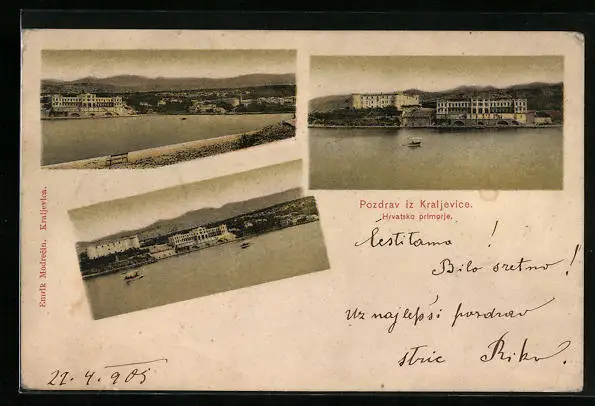 Pozdrav iz Kraljevice.
Hrvatsko primorje.
Emrik Modrečin, Kraljevica.
Čestitamo!
Bilo sretno!
Uz najlepši pozdrav
stric Riko.
21.4.905